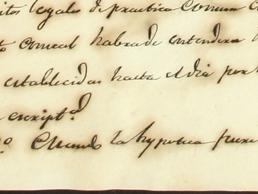 itos legales de practica Comun
to consul habra de entenders
establecidas hasta el dia por
escript.ª
º Cuando la hypoteca fuere